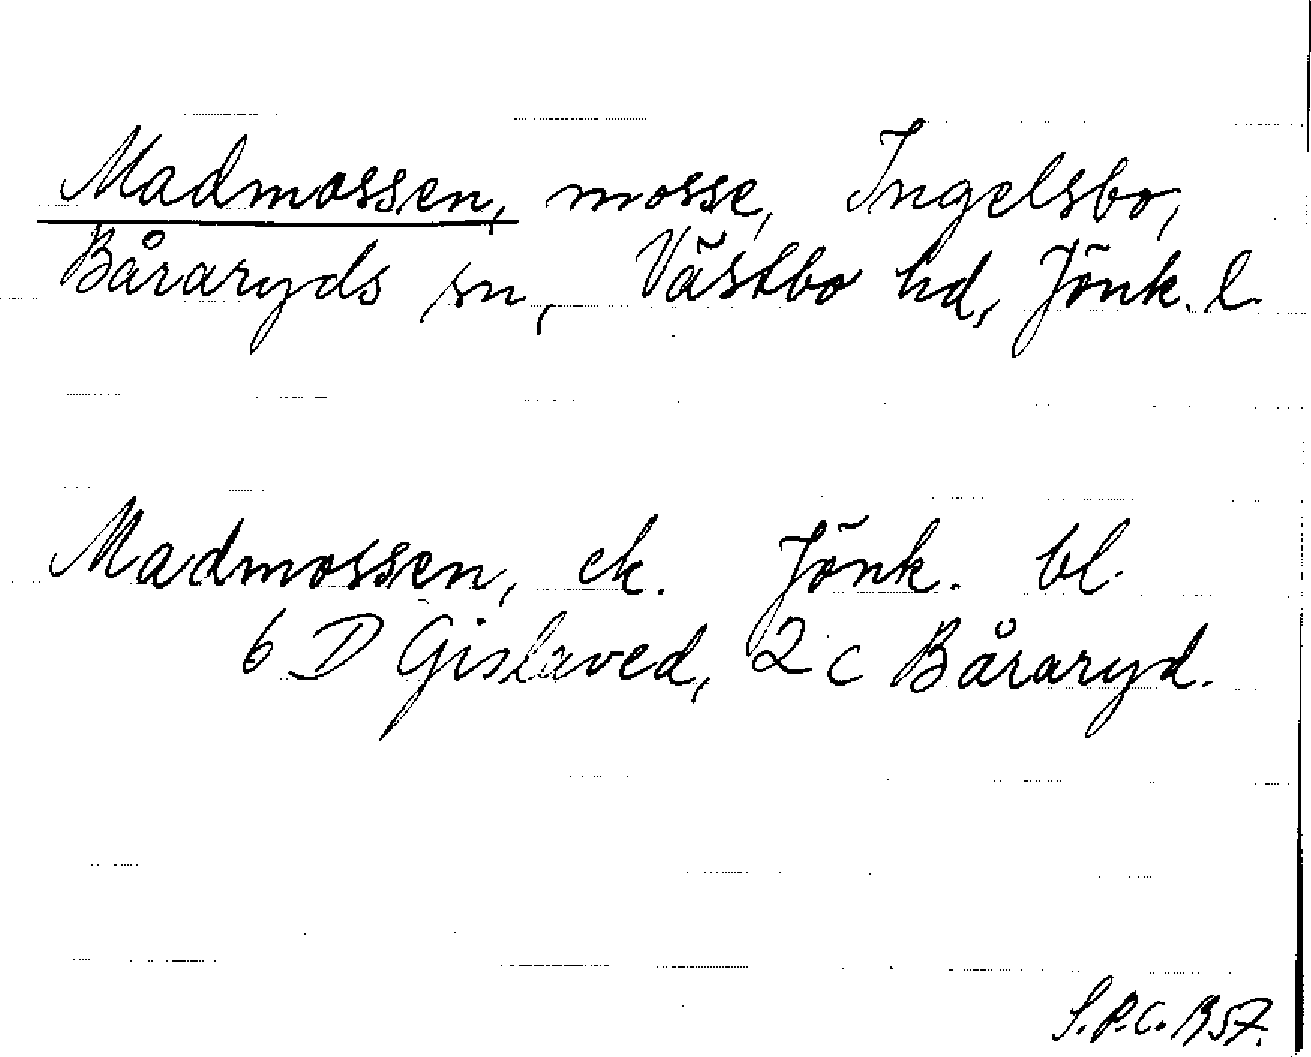 Madmossen, mosse, Ingelsbo,
Båraryds sn, Västbo hd, Jönk. l.
Madmossen, ek. Jönk. bl.
6 D Gislaved, 2 c Båraryd.
S.P.C. 1957.